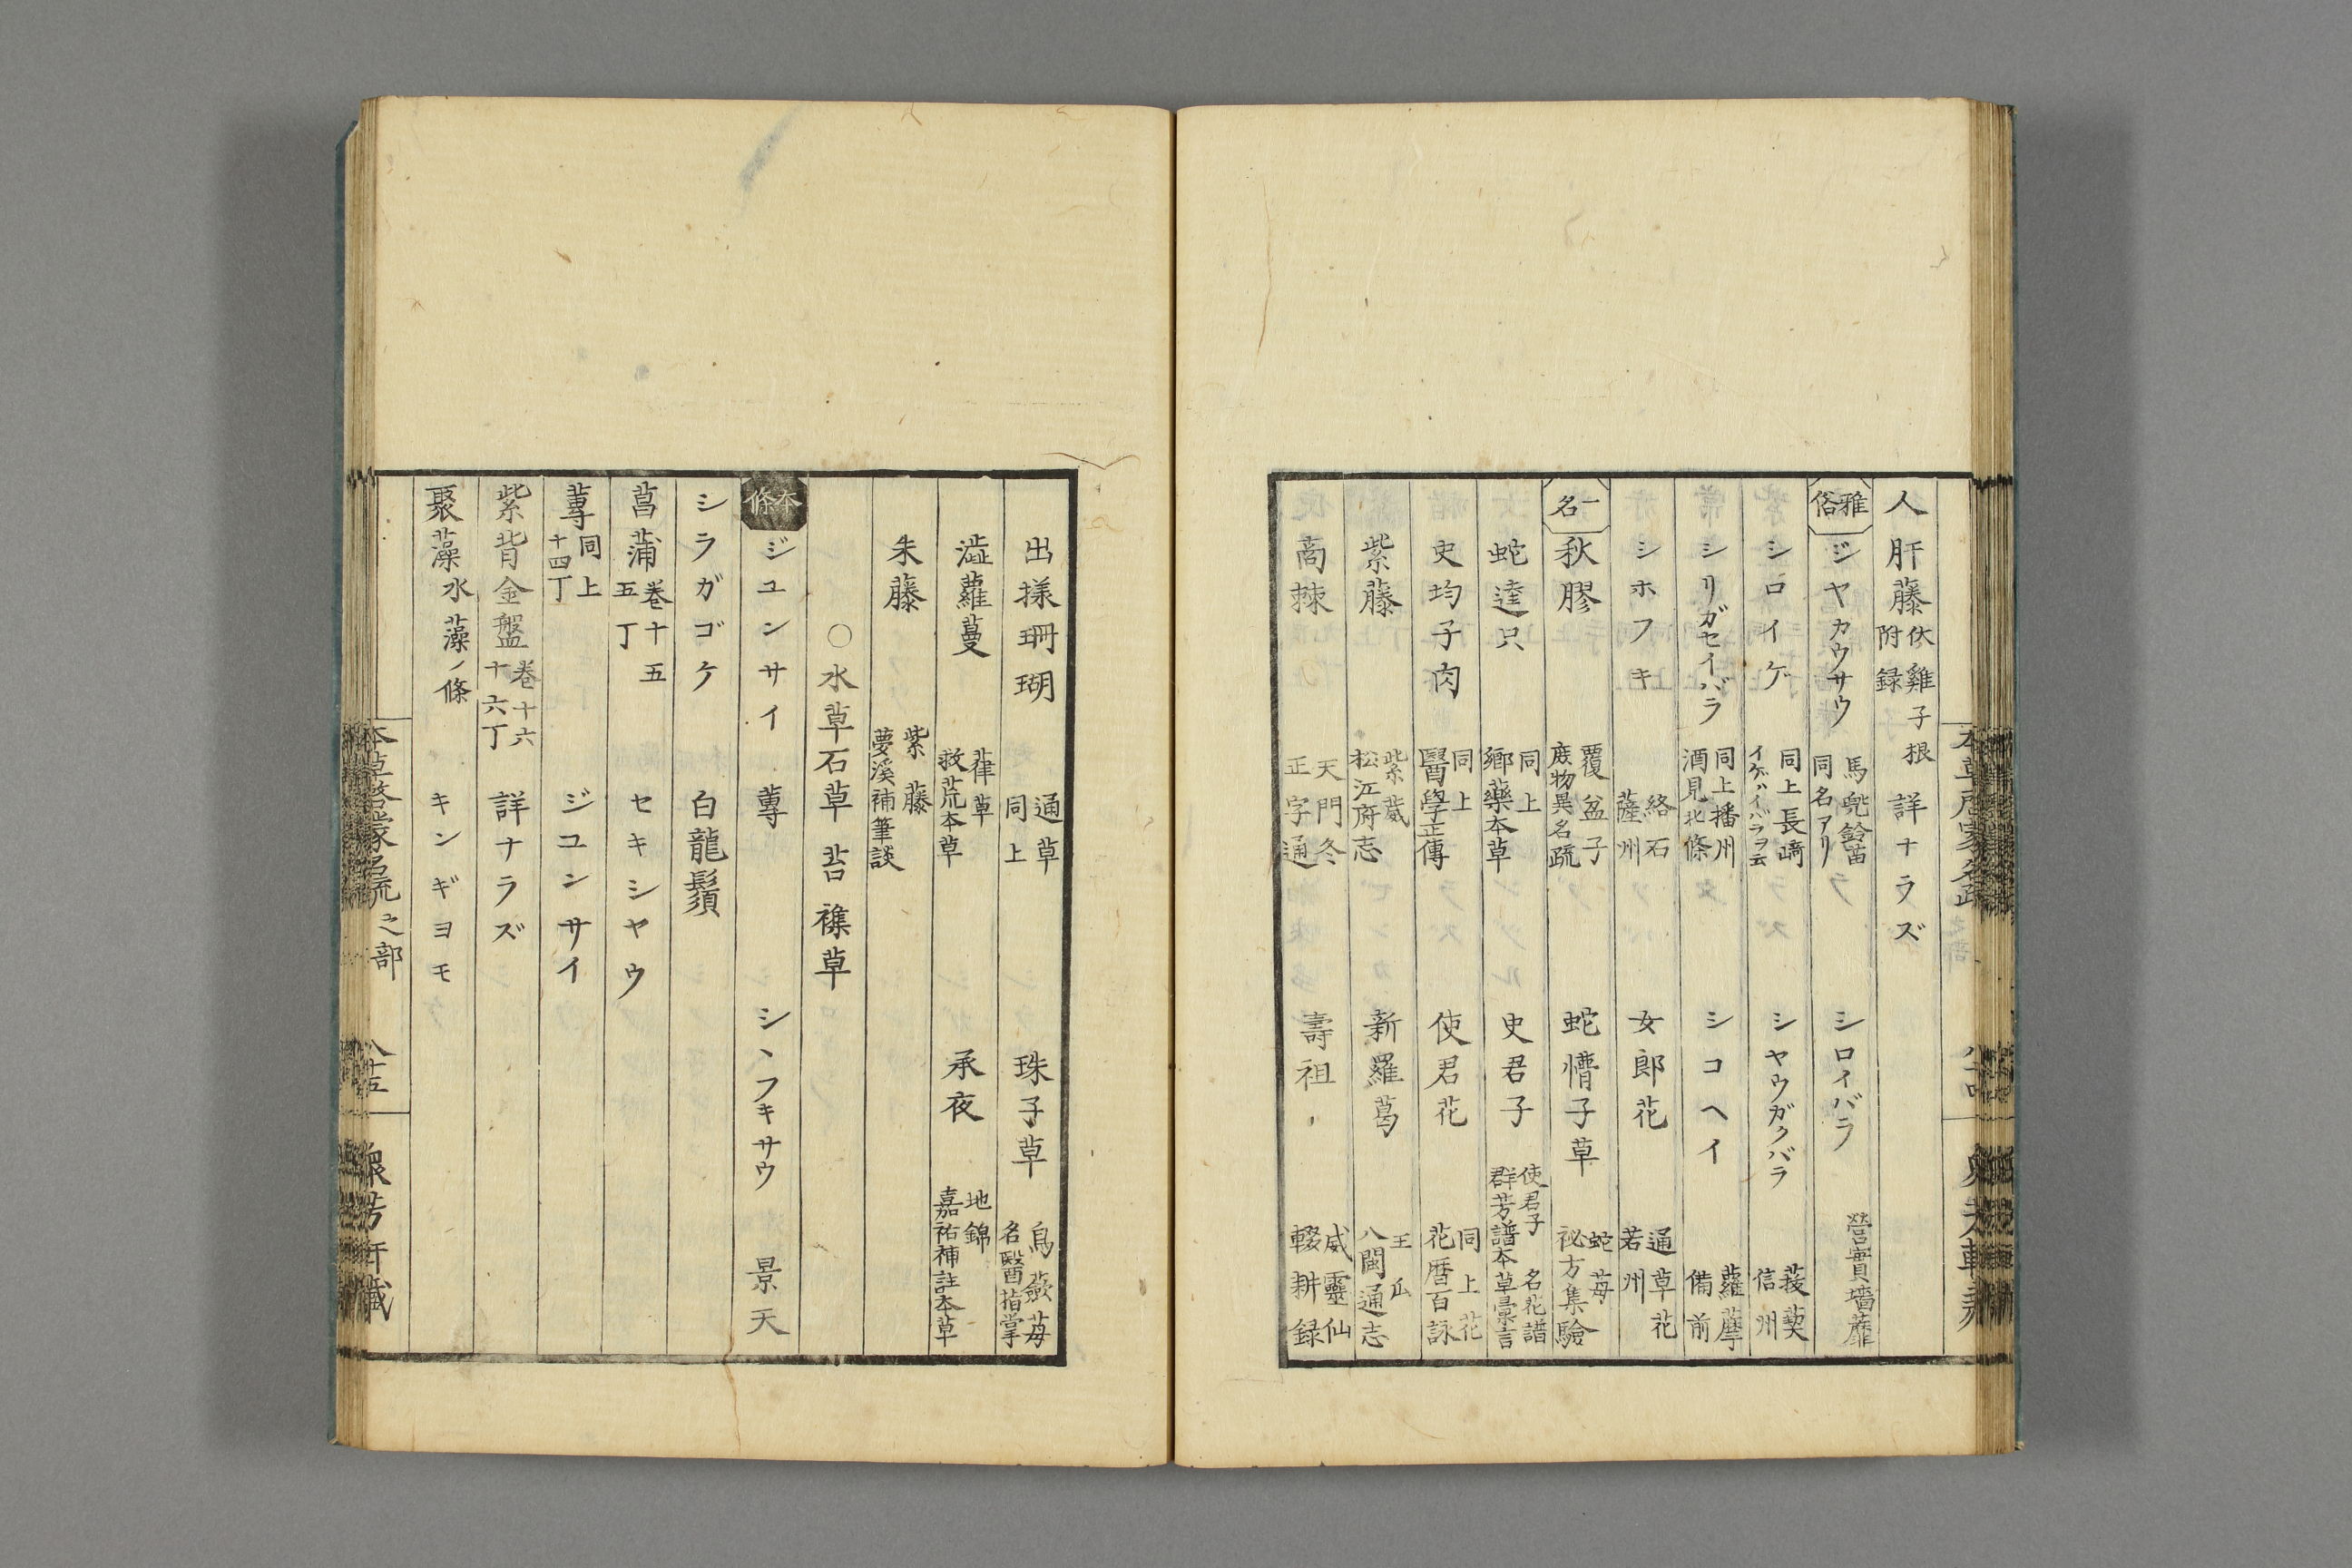 人肝藤 伏雞子根附録 詳ナラズ
雅俗 ジヤカウサウ 馬兜鈴苗同名アリ シロイバラ 營實墻蘼
シロイゲ 同上長崎イゲハイバラヲ云 シヤウガクバラ 菝葜信州
シリガセイバラ 同上播州酒見北條 シコヘイ 蘿藦備前
シホフキ 絡石薩州 女郎花 通草花若州
一名 秋膠 覆盆子庶物異名疏 蛇慒子草 蛇苺祕方集驗
蛇達只 同上鄉藥本草 史君子 使君子名花譜群芳譜本草彙言
史均子肉 同上醫學正傳 使君花 同上花花暦百詠
紫藤 紫葳松江府志 新羅葛 王瓜八閩通志
商棘 天門冬正字通 壽祖 威靈仙輟耕録
出㨾珊瑚 通草同上 珠子草 烏蘞苺名醫指掌
澁蘿蔓 葎草救荒本草 承夜 地錦嘉祐補註本草
朱藤 紫藤夢溪補筆談
○水草石草 苔 襍草
本條 ジユンサイ 蓴 シヽフキサウ 景天
シラガゴケ 白龍鬚
菖蒲 卷十五五丁 セキシヤウ
蓴 同上十四丁 ジユンサイ
紫背金盤 卷十六十六丁 詳ナラズ
聚藻 水藻ノ條 キンギヨモ
本草啓蒙名疏 之部 八十五 衆芳軒藏